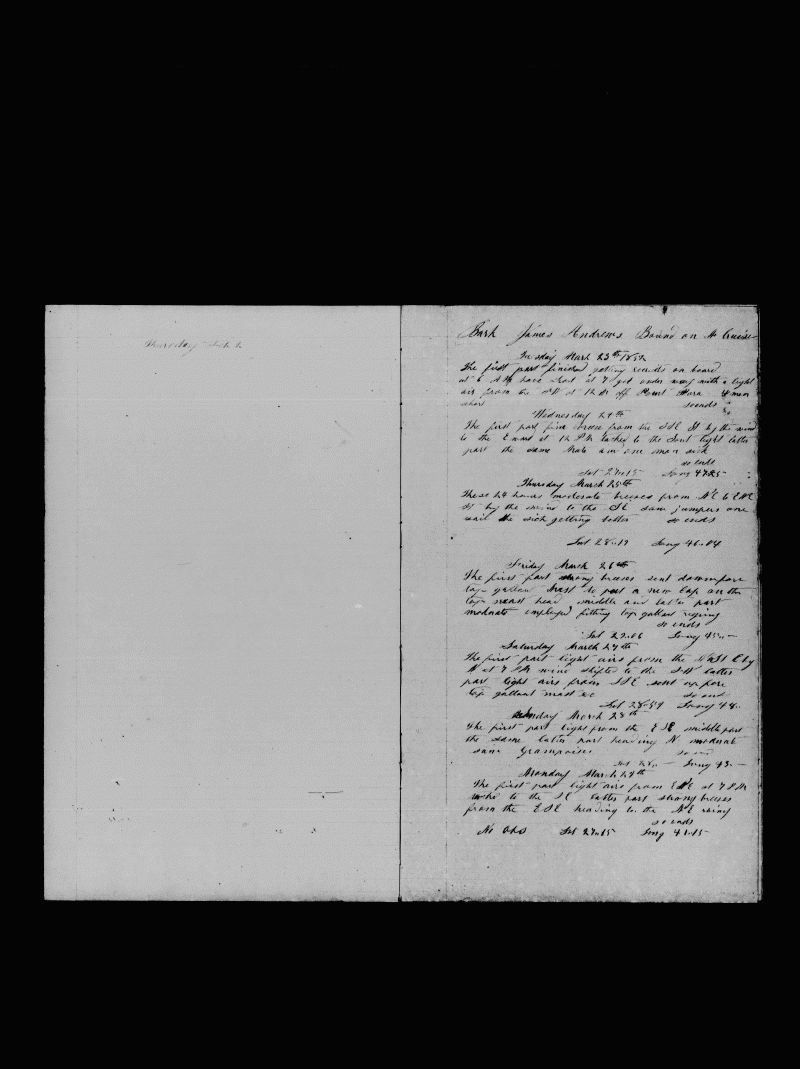 Thursday
Bark James Andrews Bound on A Cruise
Tuesday March 23th 1852
The first part finished getting recruits on board
at 6 AM at 7 got under way with a light
air from the at 12 M off Point 4 men
short so ends
Wednesday 24th
The first part fine breeze from the SSE by the wind
to the E ward at 12 PM tacked to the light latter
part the same one man sick
so ends
Lat 27..15 Long 47.25
Thursday March 25th
These 24 hours moderate breezes from NE to ENE
by the wind to the SE saw jumpers one
sail the sick getting better so ends
Lat 28..19 Long 46.04
Friday March 26th
The first part strong breeses sent down fore
top gallant Mast to put a new Cap on the
top mast head middle and latter part
moderate employed fitting top gallant rigging
so ends
Lat 29.06 Long 45..
Saturday March 27th
The first part light airs from the E by
N at 7 PM wind shifted to the latter
part light airs from SSE sent up fore
top gallant mast &c so ends
Lat 28.59 Long 44
Sunday March 28th
the first part light from the ESE middle part
the same latter part heading N moderate
saw Grampuses so ends
Lat 28.. Long 43..
Monday March 29th
The first part light airs from ENE at 7 PM
to the SE latter part strong breeses
from the ESE heading to the NE
so ends
No Obs Lat 27..15 Long 41.15